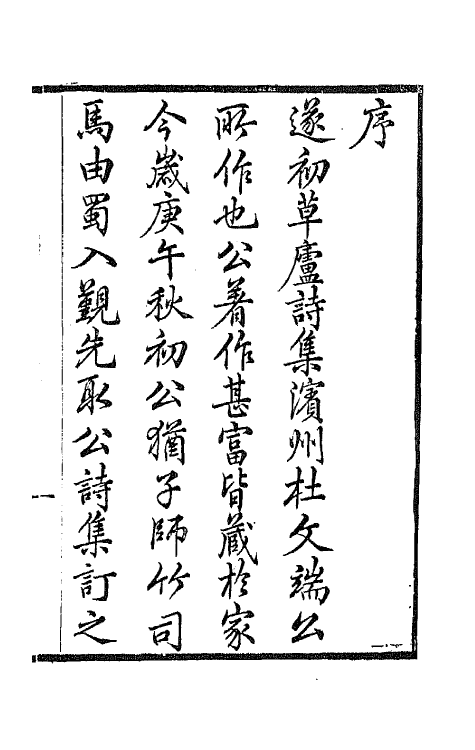 序
遂初草廬詩集濱州杜文端公
所作也公著作甚富皆藏於家
今歲庚午秋初公猶子師竹司
馬由蜀入覲先取公詩集訂之
一